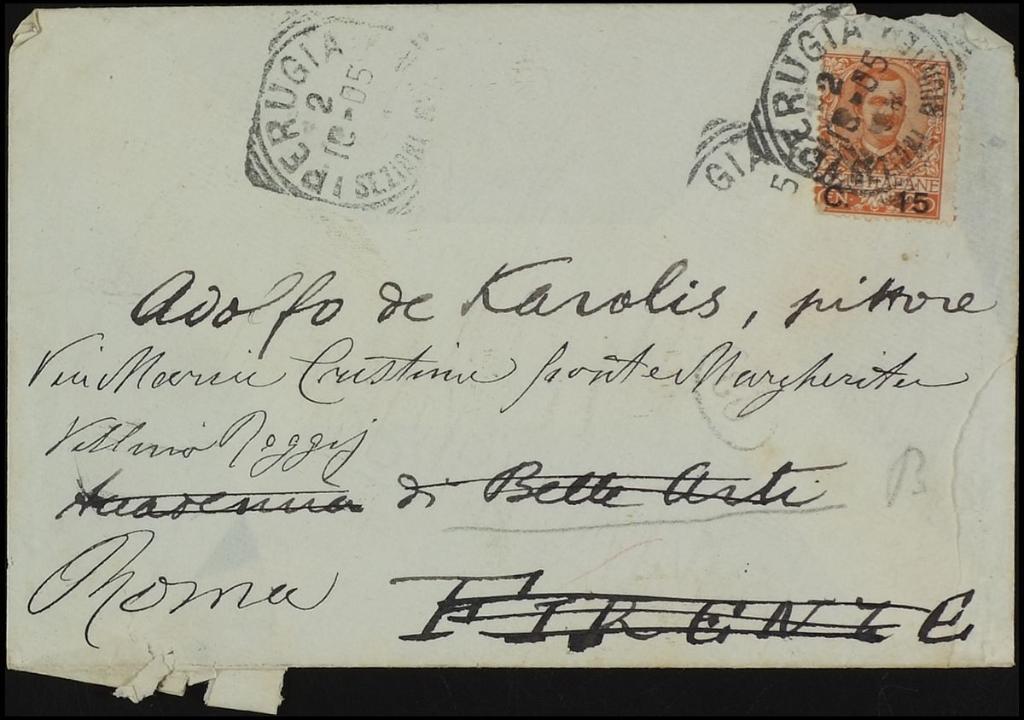 PERUGIA
2
10-05
PERUGIA
2
10-05
GIA
5
C. 15
Adolfo de Karolis, pittore
Via Maria Cristina ponte Margherita
Villino Reggij
Accademia di Belle Arti
Roma
FIRENZE
B